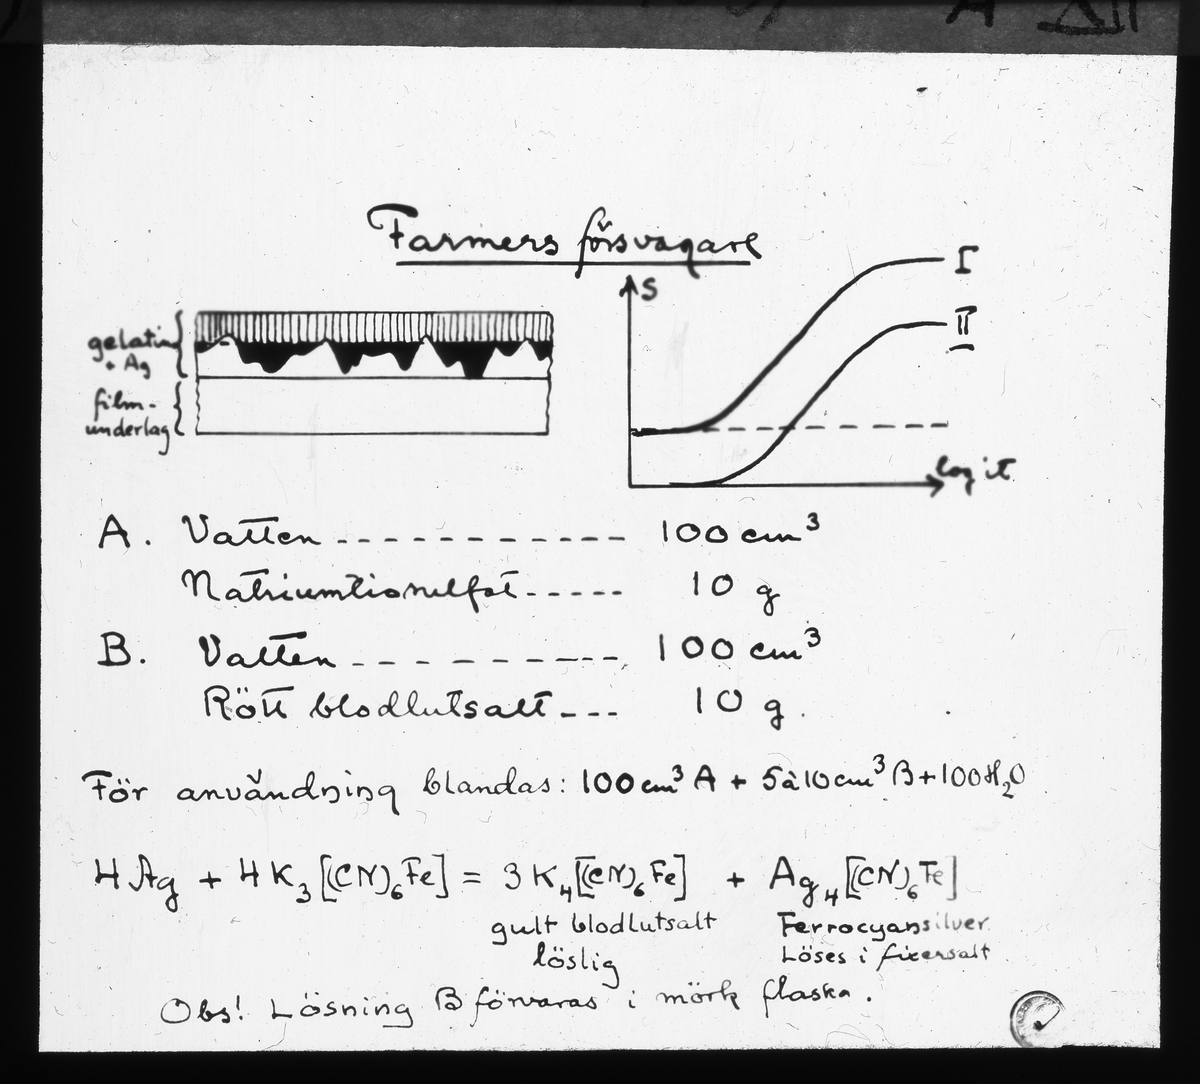 Farmers försvagare
gelatin
+ Ag
film-
underlag
S
I
II
log it
A. Vatten ------------ 100 cm³
Natriumtiosulfat ----- 10 g
B. Vatten ---------- 100 cm³
Rött blodlutsalt --- 10 g.
För användning blandas: 100 cm³ A + 5 à 10 cm³ B + 100 H₂O
4 Ag + 4 K₃[(CN)₆Fe] = 3 K₄[(CN)₆Fe] + Ag₄[(CN)₆Fe]
gult blodlutsalt Ferrocyansilver
löslig Löses i fixersalt
Obs! Lösning B förvaras i mörk flaska.